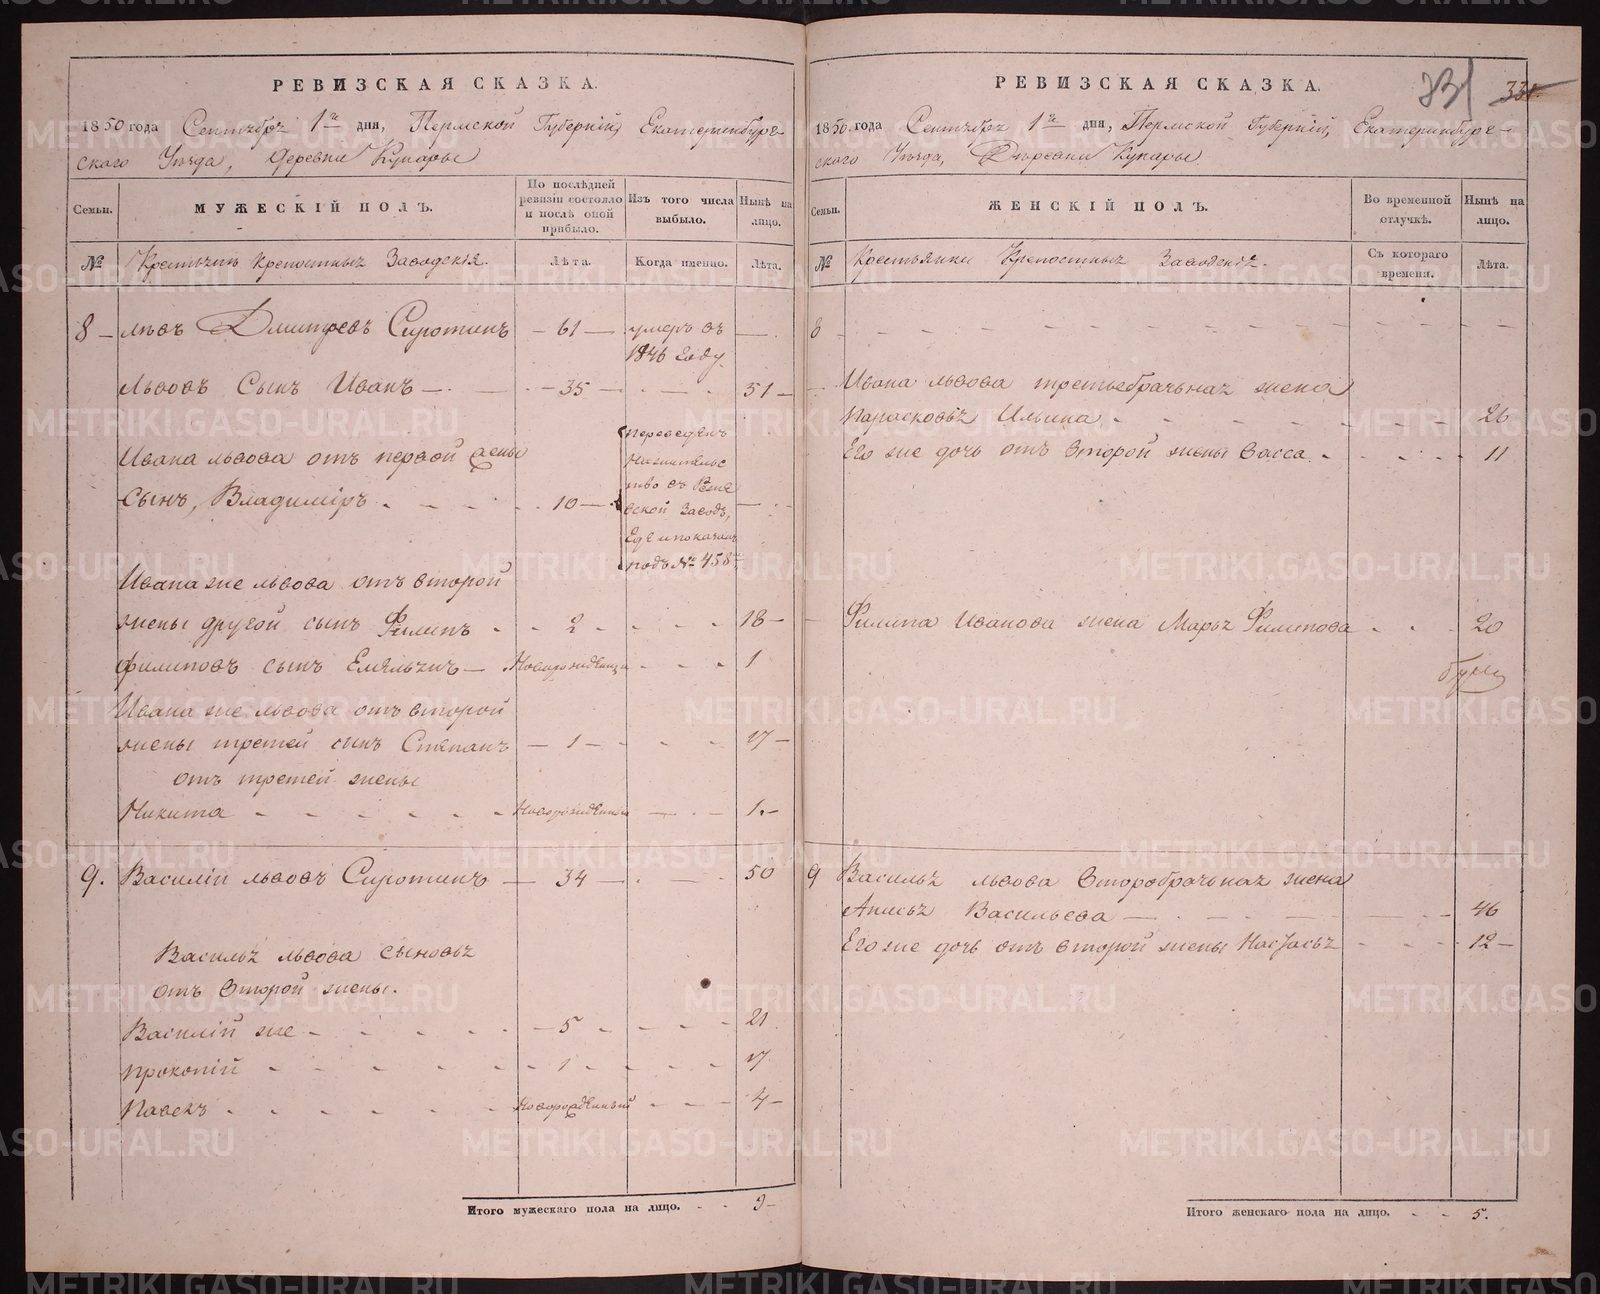 РЕВИЗСКАЯ СКАЗКА.
1850 года Сентября 1го дня, Пермской Губерніи, Екатеринбург-
скаго Уѣзда, Деревни Купары
Семьи.
МУЖЕСКІЙ ПОЛЪ.
По послѣдней ревизіи состояло и послѣ оной прибыло.
Изъ того числа выбыло.
Нынѣ на лицо.
№
Крестьянъ крепостныхъ Заводскія.
Лѣта.
Когда именно.
Лѣта.
8 – Левъ Дмитревъ Сиротинъ – 61 – умеръ въ 1846 Году. –
Львовъ Сынъ Иванъ – 35 – 51 –
Ивана львова отъ первой жены
Сынъ, Владиміръ – 10 – Переведенъ на жительство въ заводъ, Где и показанъ подъ № 458 –
Ивана же львова отъ второй
жены другой сынъ Филипъ – 2 – 18 –
Филиповъ сынъ Емельянъ – Новорожденный – 1
Ивана же львова отъ второй
жены третей сынъ Степанъ – 1 – 17 –
отъ третей жены
Никита – Новорожденный – 1. –
9. Василій львовъ Сиротинъ – 34 – 50
Василья львова сыновья
отъ второй жены.
Василій же – 5 – 21
Прокопій – 1 – 17
Павелъ – Новорожденный – 4 –
Итого мужескаго пола на лицо. – 9 –
РЕВИЗСКАЯ СКАЗКА.
331
331.
1850 года Сентября 1го дня, Пермской Губерніи, Екатеринбург-
скаго Уѣзда, Деревни Купары
Семьи.
ЖЕНСКІЙ ПОЛЪ.
Во временной отлучкѣ.
Нынѣ на лицо.
№
Крестьянки Крепостныхъ Заводскія.
Съ котораго времени.
Лѣта.
8
Ивана львова третьебрачьная жена
Парасковья Ильина – 26
Его же дочь отъ второй жены Васса – 11
Филипа Иванова жена Марья Филипова – 20
9 Василья львова второбрачьная жена
Анисья Васильева – 46
Его же дочь отъ второй жены Настасья – 12 –
Итого женскаго пола на лицо. – 5.
METRIKI.GASO-URAL.RU